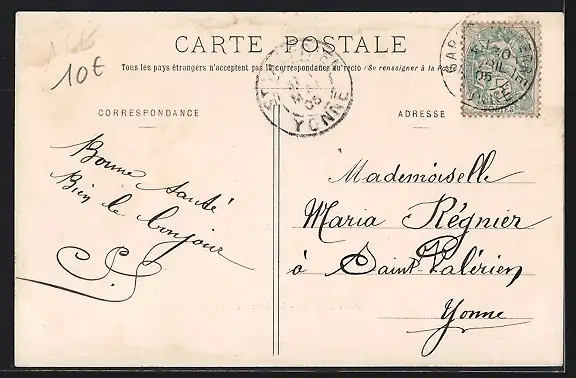 CARTE POSTALE
Tous les pays étrangers n'acceptent pas la correspondance au recto (Se renseigner à la Poste)
10€
CORRESPONDANCE
ADRESSE
YONNE
05
Bonne santé
Bien le bonjour
Mademoiselle
Maria Régnier
à Saint-Valérien
Yonne